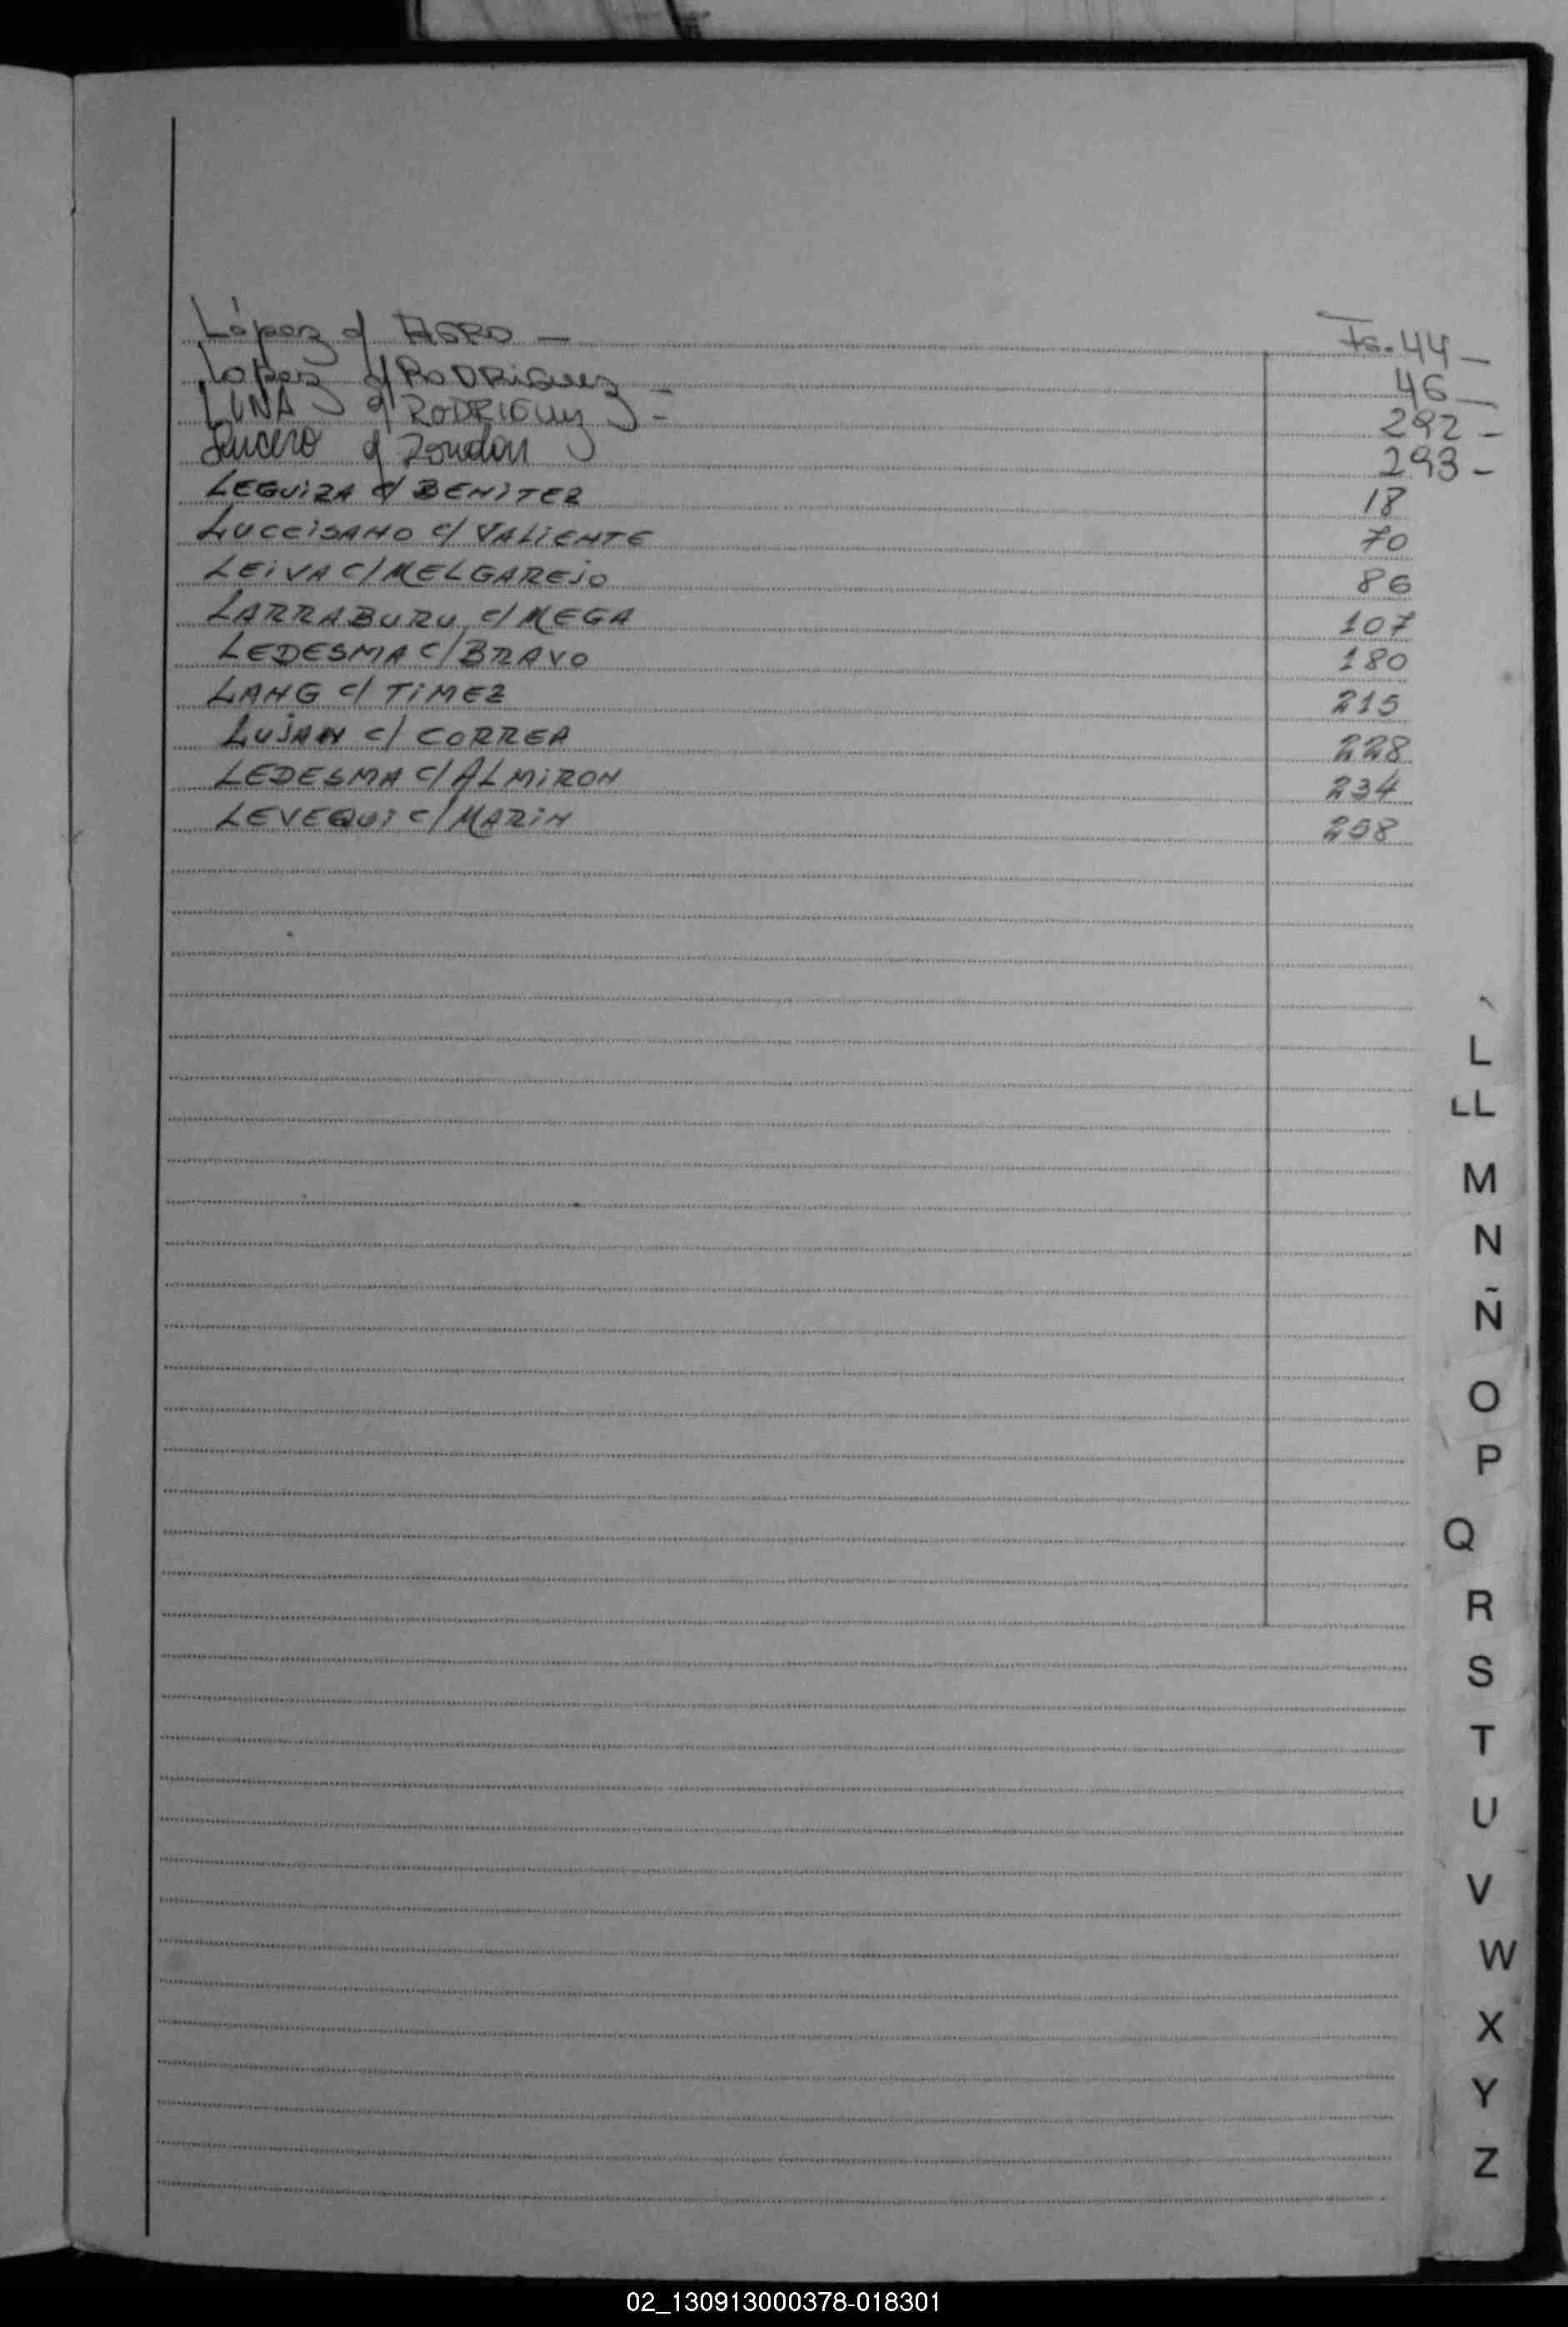 López c/ AGRO — Fs. 44 —
López c/ RODRIGUEZ — 46 —
LUNA c/ RODRIGUEZ — 292 —
Lucero c/ 293 —
LEGUIZA c/ BENITEZ 18
LUCCISANO c/ VALIENTE 70
LEIVA C/ MELGAREJO 86
LARRABURU c/ MEGA 107
LEDESMA C/ BRAVO 180
LANG c/ TIMEZ 215
LUJAN c/ CORREA 228
LEDESMA C/ ALMIRON 234
LEVEQUI c/ MARIN 258
L
LL
M
N
Ñ
O
P
Q
R
S
T
U
V
W
X
Y
Z
02_130913000378-018301